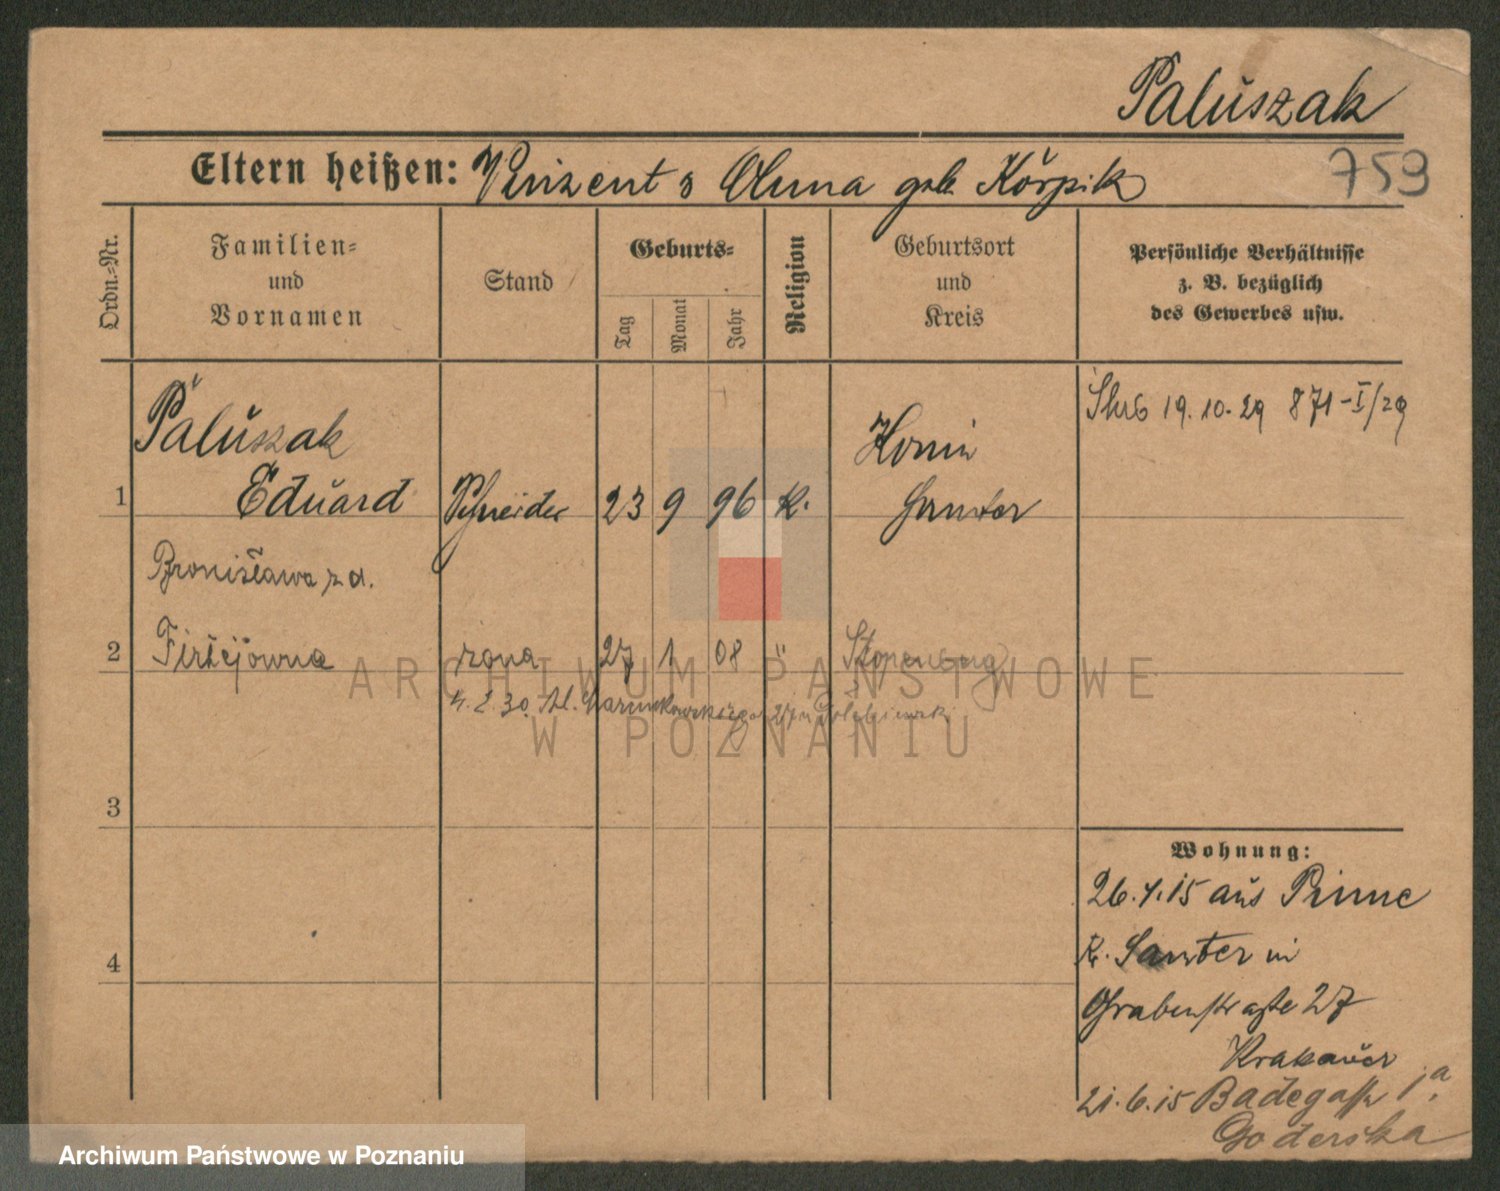 Paluszak
Eltern heißen: Vinzent & Anna geb. Korpik
753
Ordn.-Nr.
Familien-
und
Vornamen
Stand
Geburts-
Tag
Monat
Jahr
Religion
Geburtsort
und
Kreis
Persönliche Verhältnisse
z. B. bezüglich
des Gewerbes usw.
19.10.29 871-I/29
Paluszak
1 Eduard Schneider 23 9 96 k. Konin
Samter
Bronisława z d.
2 Firlejówna żona 27 1 08 "
ARCHIWUM PAŃSTWOWE
W POZNANIU
3
4
Wohnung:
26.4.15 aus Pinne
K. Samter in
Grabenstraße 27
Krakauer
21.6.15 Badegasse 1a.
Goderska
Archiwum Państwowe w Poznaniu